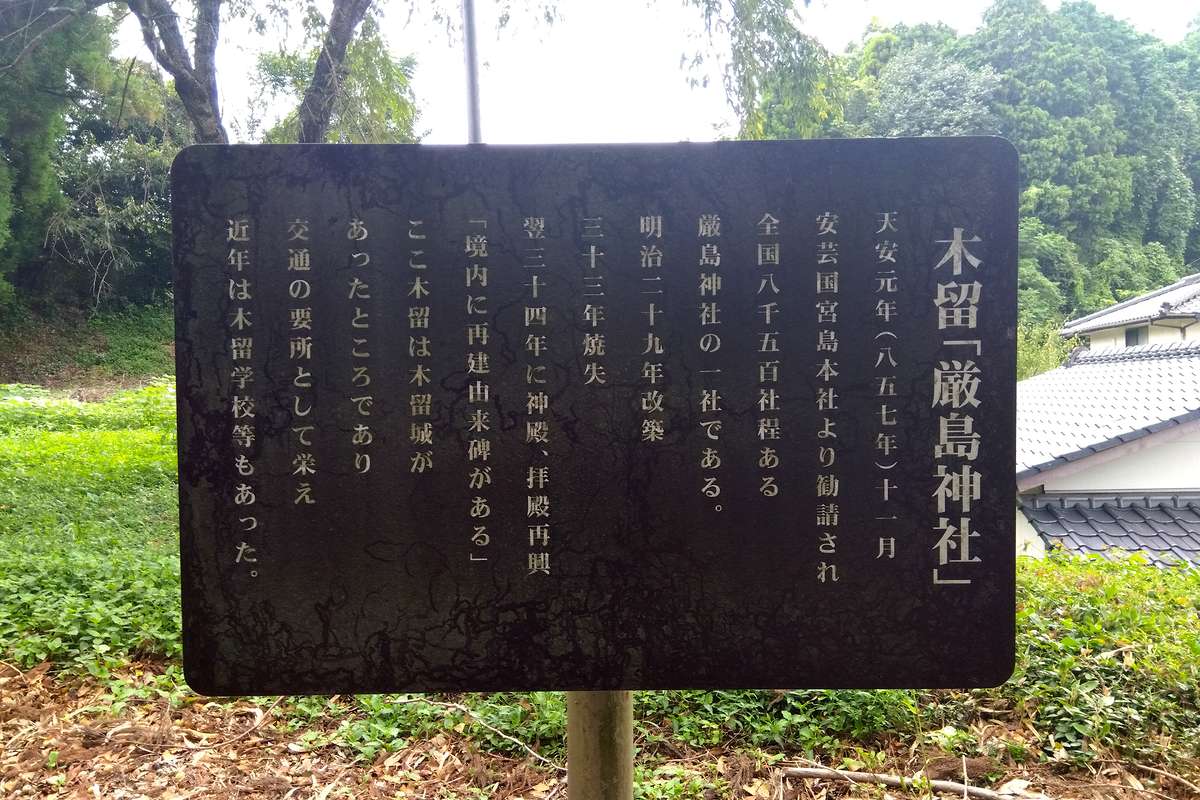 木留「厳島神社」
天安元年（八五七年）十一月
安芸国宮島本社より勧請され
全国八千五百社程ある
厳島神社の一社である。
明治二十九年改築
三十三年焼失
翌三十四年に神殿、拝殿再興
「境内に再建由来碑がある」
ここ木留は木留城が
あったところであり
交通の要所として栄え
近年は木留学校等もあった。